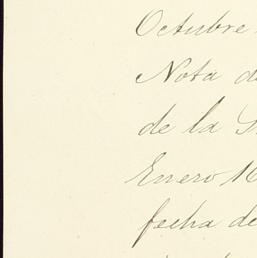 Octubre
Nota de
de la
Enero 16
fecha de